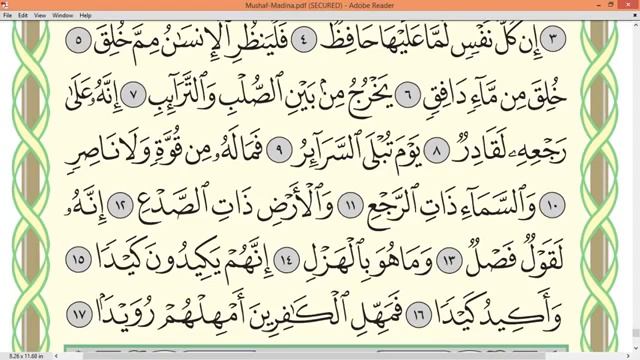 Mushaf-Madina.pdf (SECURED) - Adobe Reader
File Edit View Window Help
٣ إِن كُلُّ نَفْسٍ لَّمَّا عَلَيْهَا حَافِظٌ ٤ فَلْيَنظُرِ ٱلْإِنسَٰنُ مِمَّ خُلِقَ ٥
خُلِقَ مِن مَّآءٍ دَافِقٍ ٦ يَخْرُجُ مِنۢ بَيْنِ ٱلصُّلْبِ وَٱلتَّرَآئِبِ ٧ إِنَّهُۥ عَلَىٰ
رَجْعِهِۦ لَقَادِرٌ ٨ يَوْمَ تُبْلَى ٱلسَّرَآئِرُ ٩ فَمَا لَهُۥ مِن قُوَّةٍ وَلَا نَاصِرٍ
١٠ وَٱلسَّمَآءِ ذَاتِ ٱلرَّجْعِ ١١ وَٱلْأَرْضِ ذَاتِ ٱلصَّدْعِ ١٢ إِنَّهُۥ
لَقَوْلٌ فَصْلٌ ١٣ وَمَا هُوَ بِٱلْهَزْلِ ١٤ إِنَّهُمْ يَكِيدُونَ كَيْدًا ١٥
وَأَكِيدُ كَيْدًا ١٦ فَمَهِّلِ ٱلْكَٰفِرِينَ أَمْهِلْهُمْ رُوَيْدًۢا ١٧
8.26 x 11.68 in